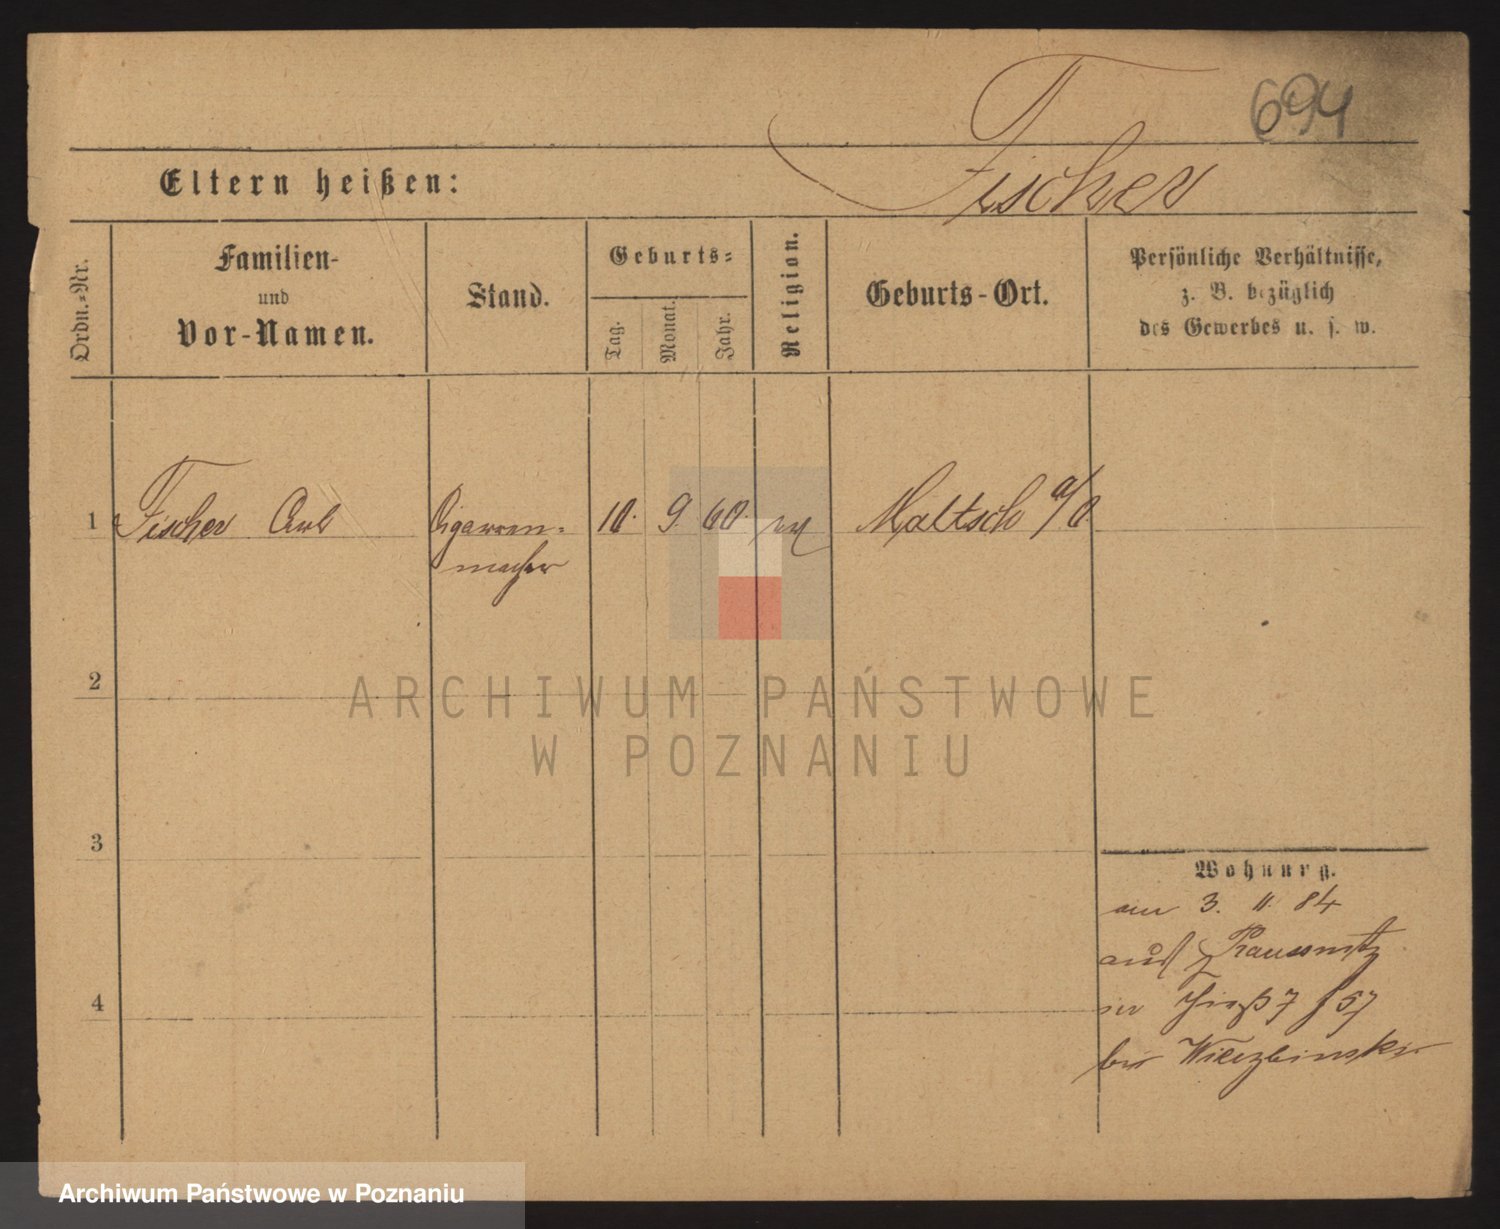 694
Fischer
Eltern heißen:
Ordn.=Nr.
Familien-
und
Vor-Namen.
Stand.
Geburts=
Tag.
Monat.
Jahr.
Religion.
Geburts-Ort.
Persönliche Verhältnisse,
z. B. bezüglich
des Gewerbes u. s. w.
1 Fischer Cigarren= 10. 9. 60. Maltsch a/O.
macher
2
ARCHIWUM PAŃSTWOWE
W POZNANIU
3
Wohnung.
am 3. 11. 84
aus
in 57
bei
4
Archiwum Państwowe w Poznaniu